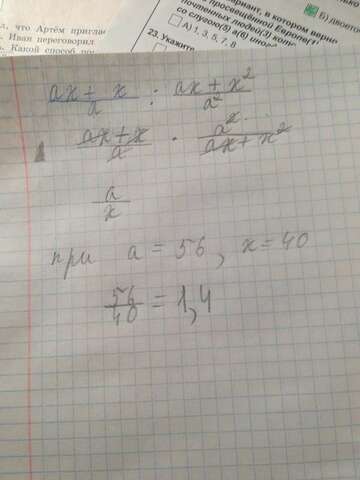 , что Артём приглас
Иван переговорил
Какой способ по
вариант, в котором верно
просвещённой Европе(1)
почтенных людей(3)
со слугою(5) а(6)
А) 1, 3, 5, 7, 8
Б) двоето
23. Укажите
ax + x / a : ax + x² / a²
ax + x / a · a² / ax + x²
a / x
при a = 56, x = 40
56 / 40 = 1,4